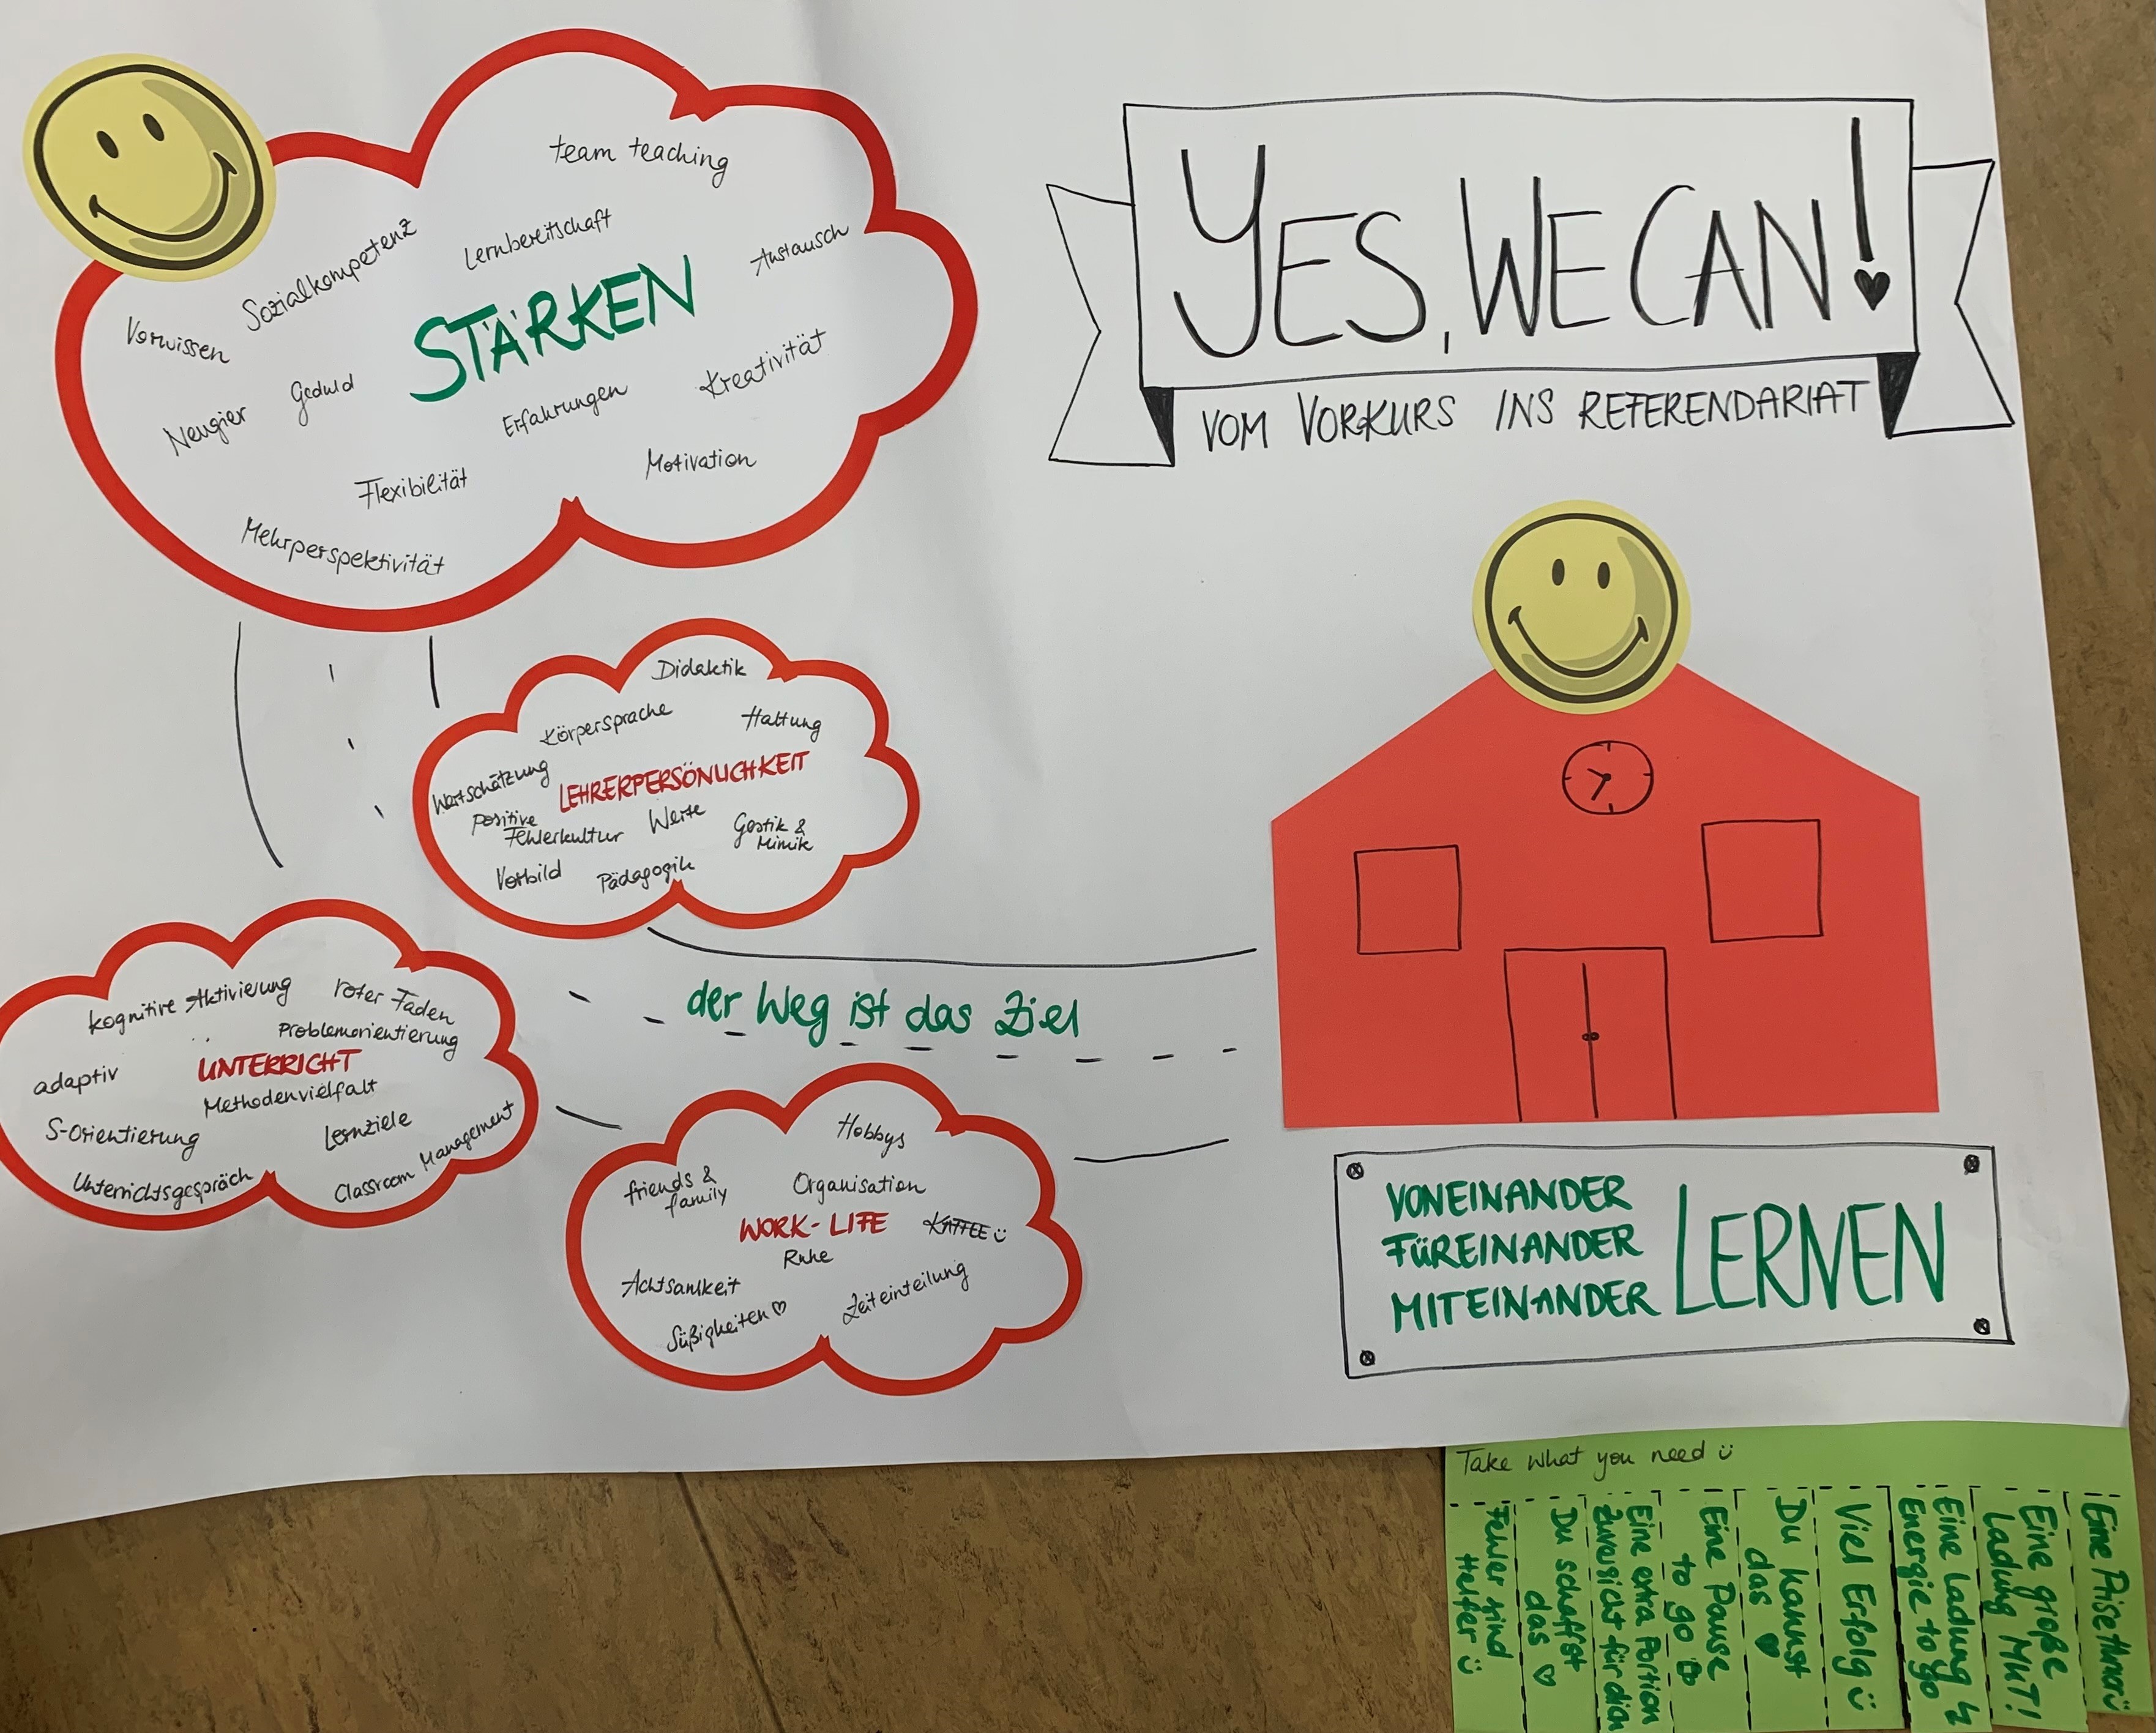 team teaching
Sozialkompetenz
Lernbereitschaft
Austausch
Vorwissen
STÄRKEN
Neugier
Geduld
Erfahrungen
Kreativität
Flexibilität
Motivation
Mehrperspektivität
YES, WE CAN!
VOM VORKURS INS REFERENDARIAT
Didaktik
Körpersprache
Haltung
Wertschätzung
LEHRERPERSÖNLICHKEIT
positive
Fehlerkultur
Werte
Gestik &
Mimik
Vorbild
Pädagogik
kognitive Aktivierung
roter Faden
Problemorientierung
UNTERRICHT
adaptiv
Methodenvielfalt
S-Orientierung
Lernziele
Unterrichtsgespräch
Classroom Management
der Weg ist das Ziel
Hobbys
friends &
family
Organisation
WORK-LIFE
KAFFEE
Ruhe
Achtsamkeit
Süßigkeiten
Zeiteinteilung
VONEINANDER
FÜREINANDER
MITEINANDER
LERNEN
Take what you need
Feuer sind
Helfer
Du schaffst
das
Eine extra Portion
Zuversicht für dich
Eine Pause
to go
Du kannst
das
Viel Erfolg
Eine Ladung
Energie to go
Eine große
Ladung MUT!
Eine Prise